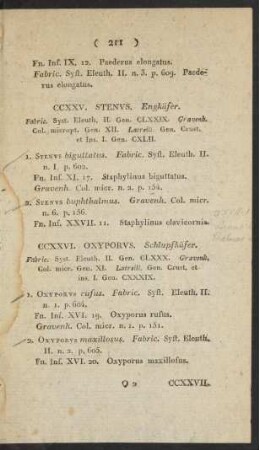 ( 211 )
Fn. Inf. IX. 12. Paederus elongatus.
Fabric. Syst. Eleuth. II. n. 3. p. 609. Paede-
rus elongatus.
CCXXV. STENVS. Engkäfer.
Fabric. Syst. Eleuth. II. Gen. CLXXIX. Gravenh.
Col. micropt. Gen. XII. Latreill. Gen. Crust.
et Ins. I. Gen. CXLII.
1. STENVS biguttatus. Fabric. Syst. Eleuth. II.
n. 1. p. 602.
Fn. Inf. XI. 17. Staphylinus biguttatus.
Gravenh. Col. micr. n. 2. p. 154.
2. STENVS buphthalmus. Gravenh. Col. micr.
n. 6. p. 156.
Fn. Inf. XXVII. 11. Staphylinus clavicornis.
CCXXVI. OXYPORVS. Schlupfkäfer.
Fabric. Syst. Eleuth. II. Gen. CLXXX. Gravenh.
Col. micr. Gen. XI. Latreill. Gen. Crust. et
ins. I. Gen. CXXXIX.
1. OXYPORVS rufus. Fabric. Syst. Eleuth. II.
n. 1. p. 604.
Fn. Inf. XVI. 19. Oxyporus rufus.
Gravenh. Col. micr. n. 1. p. 151.
2. OXYPORVS maxillosus. Fabric. Syst. Eleuth.
II. n. 2. p. 605.
Fn. Inf. XVI. 20. Oxyporus maxillosus.
O 2 CCXXVII.